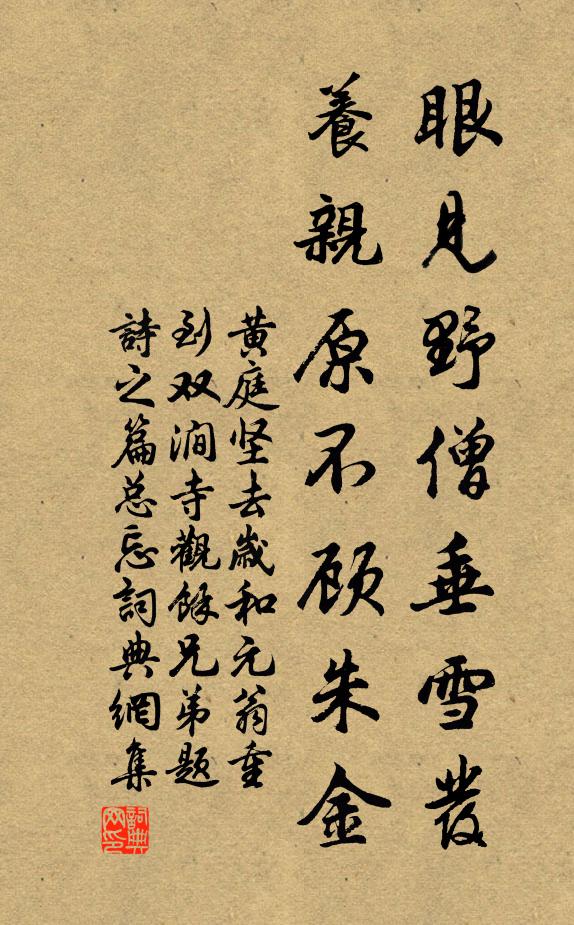 眼見野僧垂雪發
養親原不顾朱金
黄庭坚去歲和元翁重
到双澗寺觀餘兄弟題
詩之篇总忘詞典網集
詞典網印